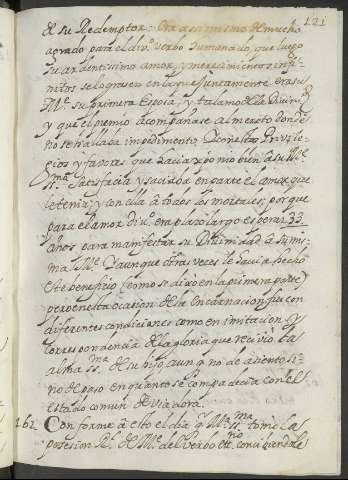 121
de su Redemptor: Era assimismo de mucho
agrado para el divº. Verbo humanado, que luego
su ardentissimo amor, y merecimientos infi-
nitos se lograsen en la que juntamente era su
Mᵉ. su primera Esposa, y talamo de la Divinidᵈ
y que el premio acompañase al merito donde
no se hallaba impedimento. Y con estos Privile-
gios y favores que hacia xpo nro bien à su Mᵉ.
ssᵐᵃ. satisfacia y saciaba en parte el amor que
le tenia; y con ella à todos los mortales; porque
para el amor divº. era plazo largo esperar 33
años para manifestar su Divinidad à su mis-
ma Mᵉ. Y aunque otras veces le havia hecho
este beneficio (como se dixo en la primera parte)
pero en esta ocasion de la Encarnacion fue con
diferentes condiciones como en imitacion y
correspondencia de la gloria que recivio la
alma ssᵐᵃ. de su hijo, aunq no de asiento si-
no de paso en quanto se compadecia con el
estado comun de viadora.
162 Conforme à esto el dia q Mᵃ. ssᵐᵃ. tomò la
posesion Rˡ. de Mᵉ. del Verbo etᵉʳⁿᵒ. conciviendole